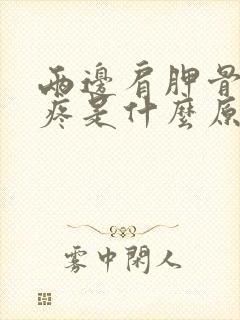 兩邊肩胛骨
疼是什麼原
雾中閑人